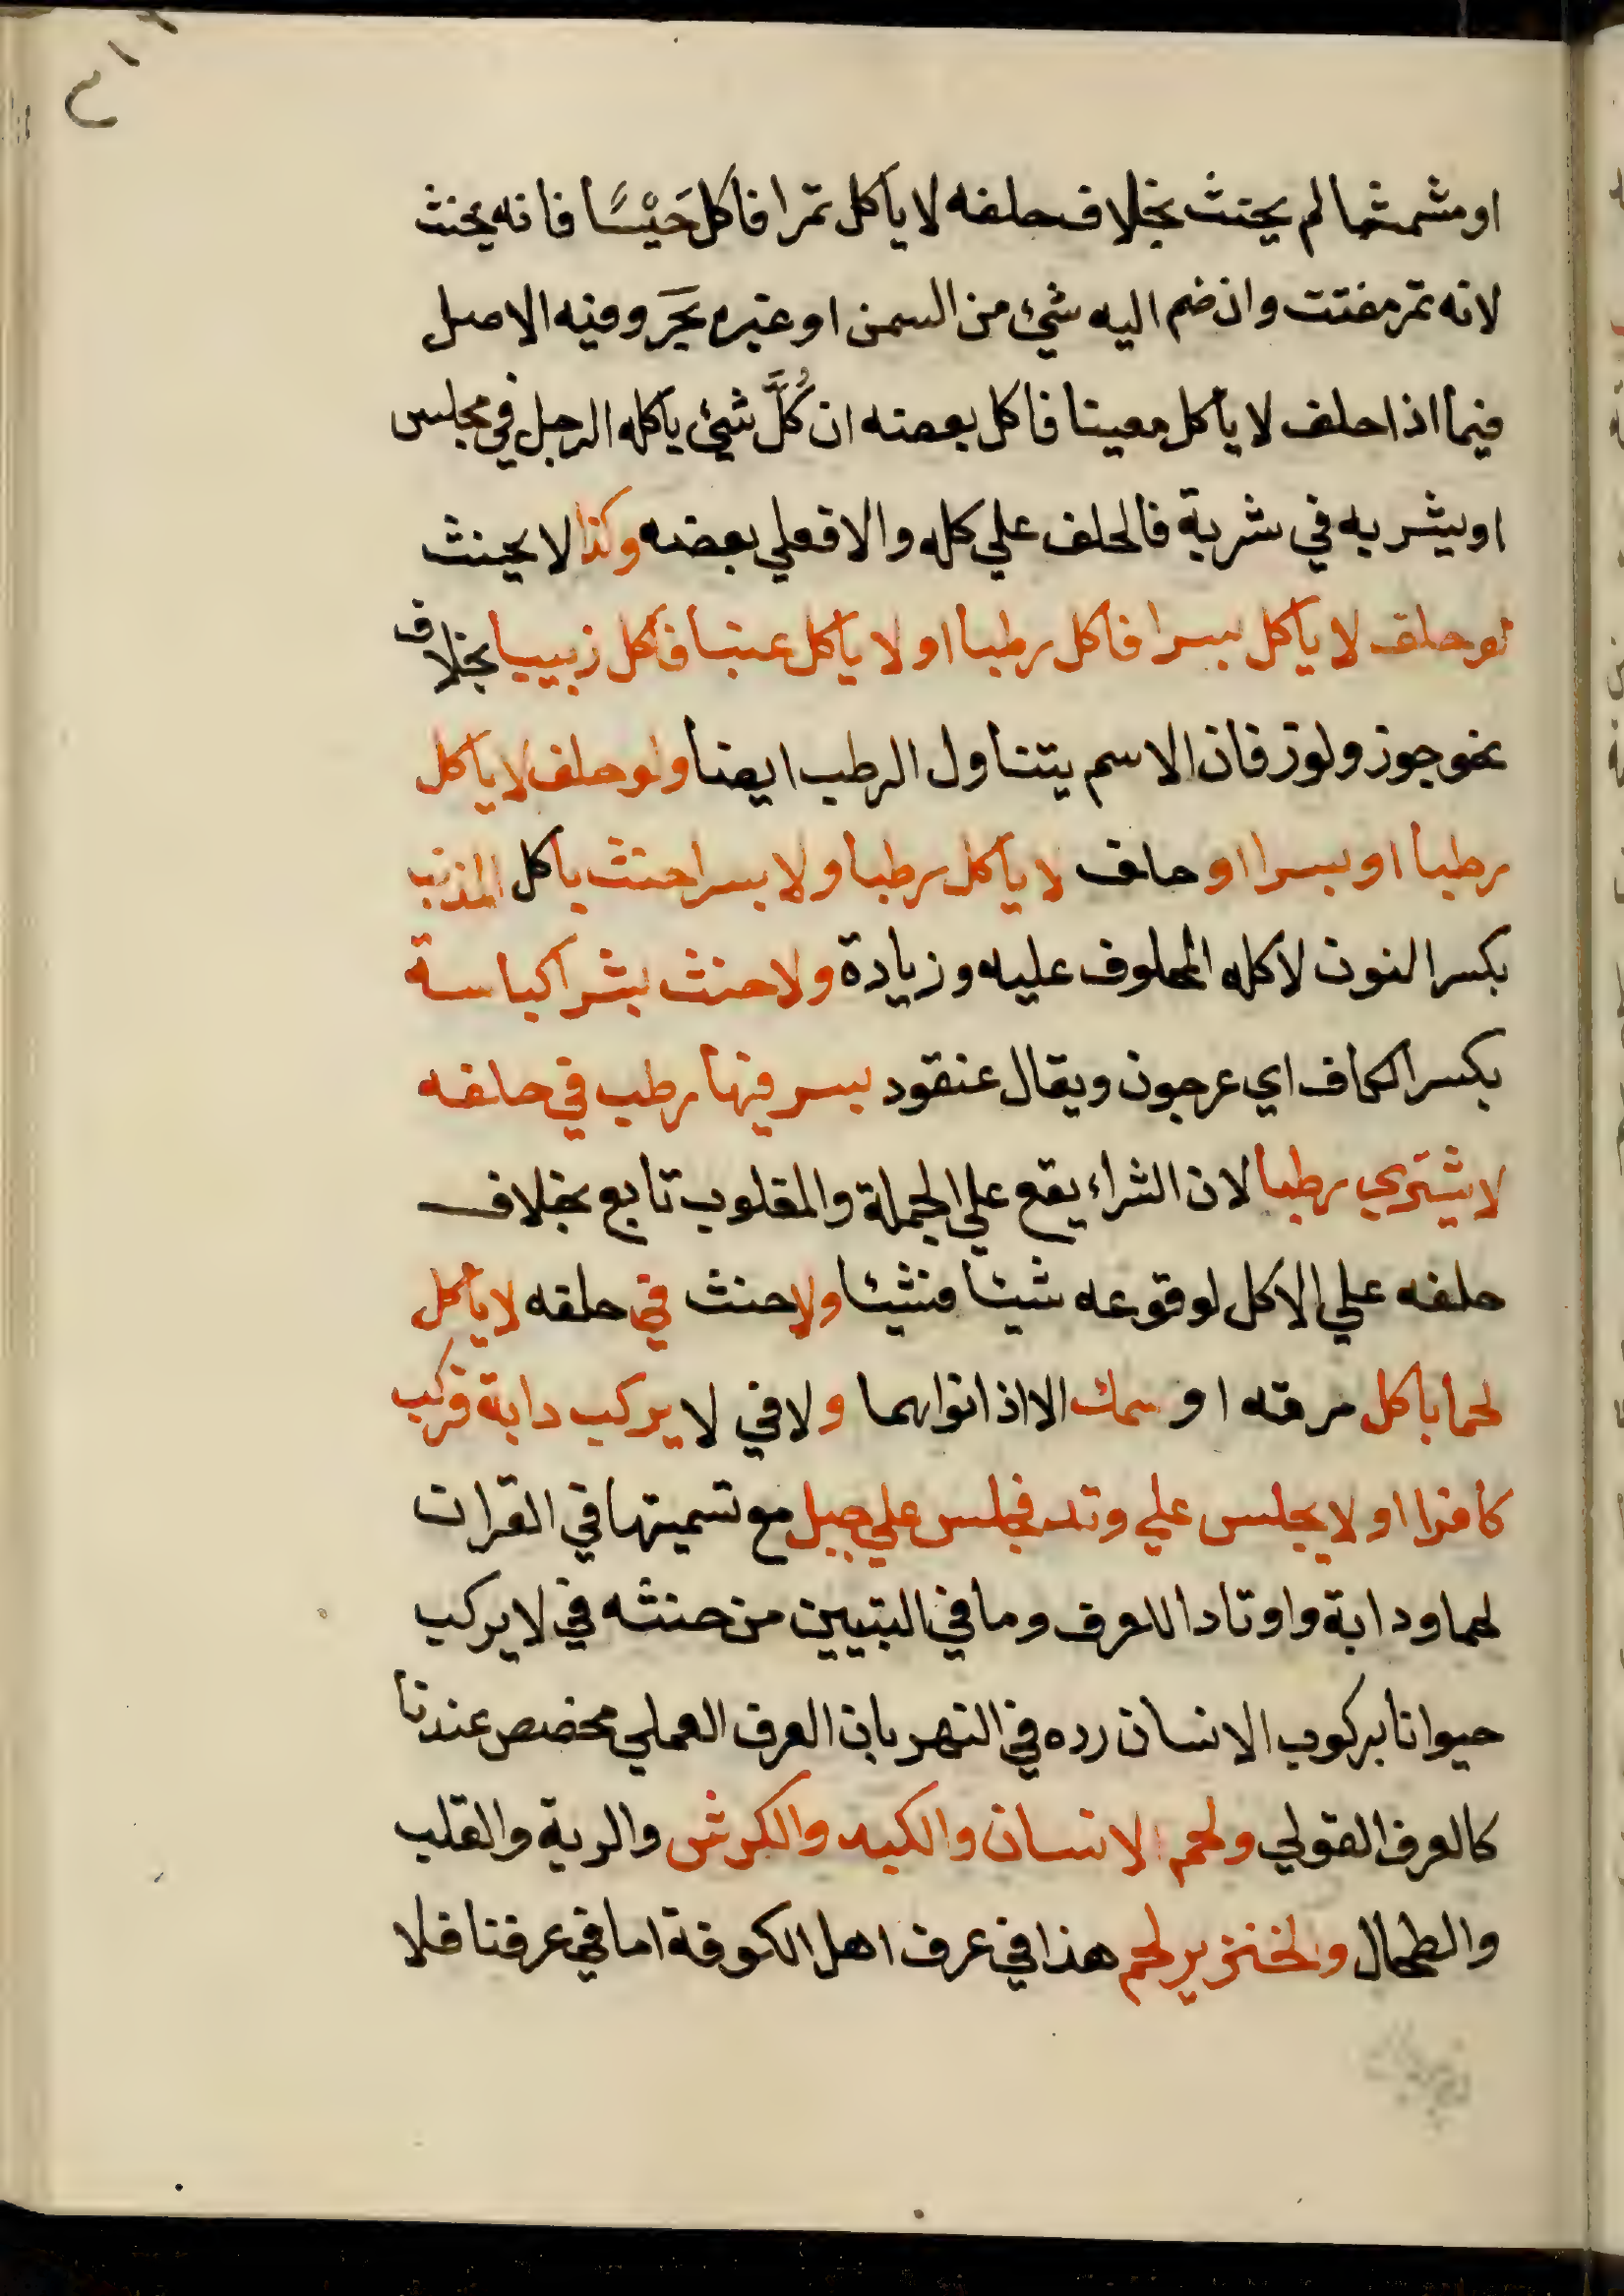 او مشمشا لم يحنث بخلاف حلفه لا ياكل تمرا فاكل حَيْسًا فانه يحنث
لانه تمر مفتت وان ضم اليه شئ من السمن او غيره بَحَر وفيه الاصل
فيما اذا حلف لا ياكل معينا فاكل بعضه ان كُلَّ شئ ياكله الرجل في مجلس
او يشربه في شربة فالحلف علي كله والا فعلي بعضه وكذا لا يحنث
لو حلف لا ياكل بسرا فاكل رطبا او لا ياكل عنبا فاكل زبيبا بخلاف
نحو جوز ولوز فان الاسم يتناول الرطب ايضا ولو حلف لا ياكل
رطبا او بسرا او حلف لا ياكل رطبا ولا بسرا حنث باكل المذنب
بكسر النون لاكله المحلوف عليه وزيادة ولا حنث بشرا كباسة
بكسر الكاف اي عرجون ويقال عنقود بسر فيها رطب في حلفه
لا يشتري رطبا لان الشراء يقع علي الجملة والمغلوب تابع بخلاف
حلفه علي الاكل لوقوعه شيئا فشيئا ولا حنث في حلفه لا ياكل
لحما باكل مرقه او سمك الا اذا نواهما ولا في لا يركب دابة فركب
كافرا او لا يجلس علي وتد فجلس علي جبل مع تسميتها في القران
لحما ودابة واوتادا للعرف وما في التبيين من حنثه في لا يركب
حيوانا بركوب الانسان رده في النهر بان العرف العملي مخصص عندنا
كالعرف القولي ولحم الانسان والكبد والكرش والرية والقلب
والطحال والخنزير لحم هذا في عرف اهل الكوفة اما في عرفنا فلا